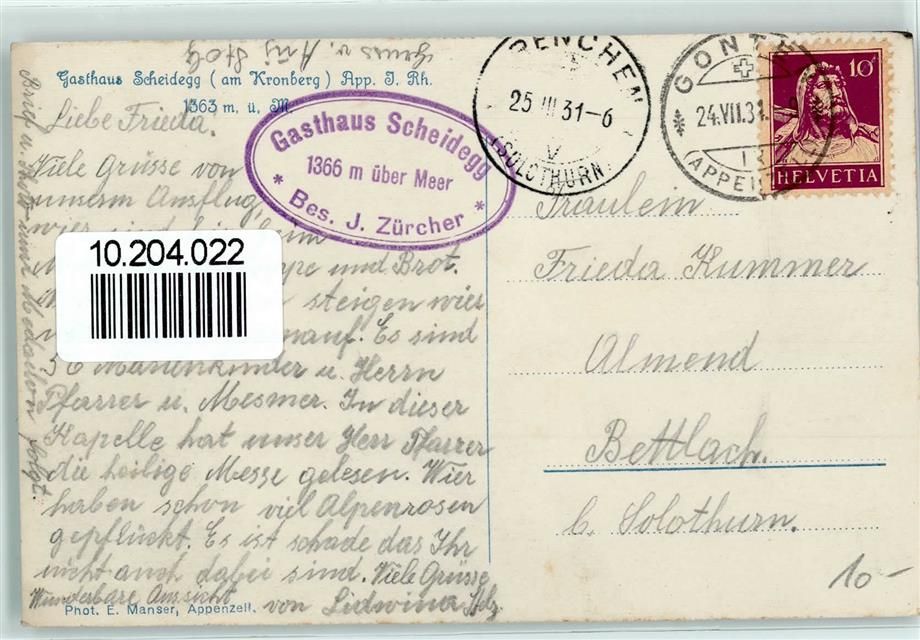 Gruss v.
Gasthaus Scheidegg (am Kronberg) App. J. Rh.
1363 m. ü. M.
Liebe Frieda,
Viele Grüsse von
unserm Ausflug,
wier sind
und Brot.
steigen wier
hinauf. Es sind
36 Marienkinder u. Herrn
Pfarrer u. Mesmer. In dieser
Kapelle hat unser Herr Pfarrer
die heilige Messe gelesen. Wier
haben schon viel Alpenrosen
gepflückt. Es ist schade das Ihr
nicht auch dabei sind. Viele Grüsse
Wunderbare Aussicht
von Lidwina
Phot. E. Manser, Appenzell.
Brief u. folgt.
Gasthaus Scheidegg
1366 m über Meer
* Bes. J. Zürcher *
GRENCHEN
25.VII.31-6
V
(SOLOTHURN)
GONTEN
24.VII.31
(APPENZELL)
10
HELVETIA
Fräulein
Frieda Kummer
Almend
Bettlach.
b. Solothurn.
10-
10.204.022